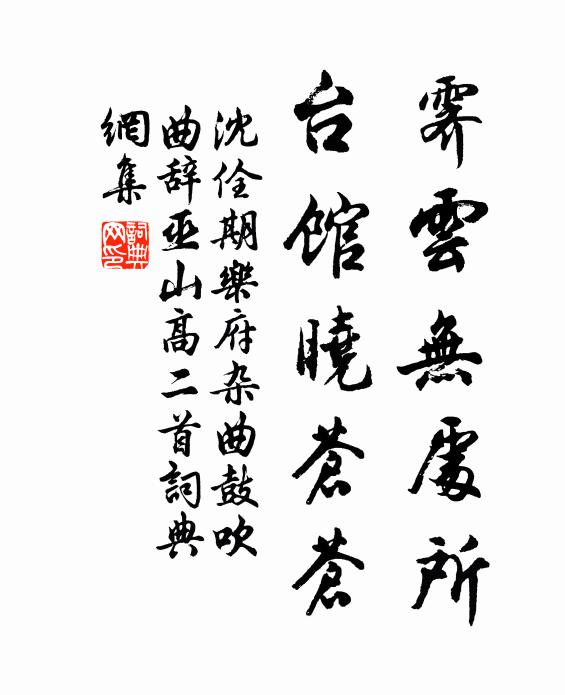 霽雲無處所
台館曉蒼蒼
沈佺期樂府杂曲鼓吹
曲辞巫山高二首詞典
網集
詞典
网印